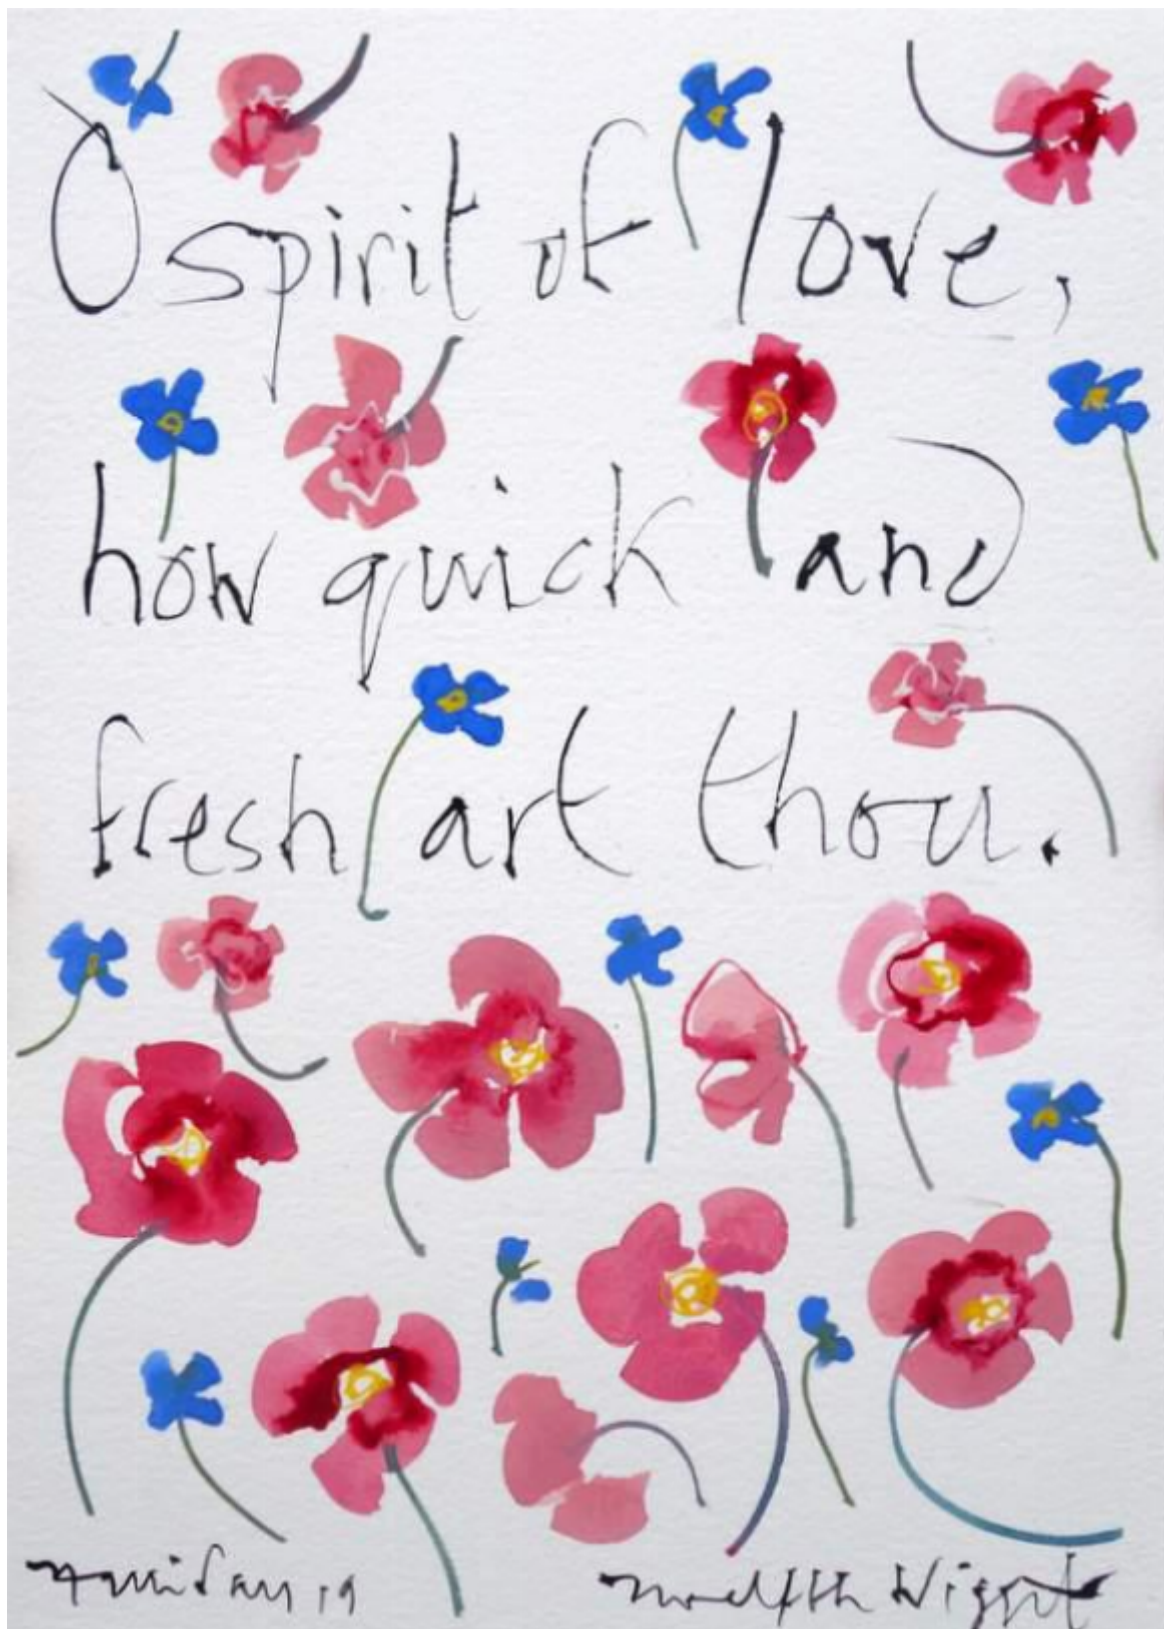 O spirit of love,
how quick and
fresh art thou.
19 Twelfth Night